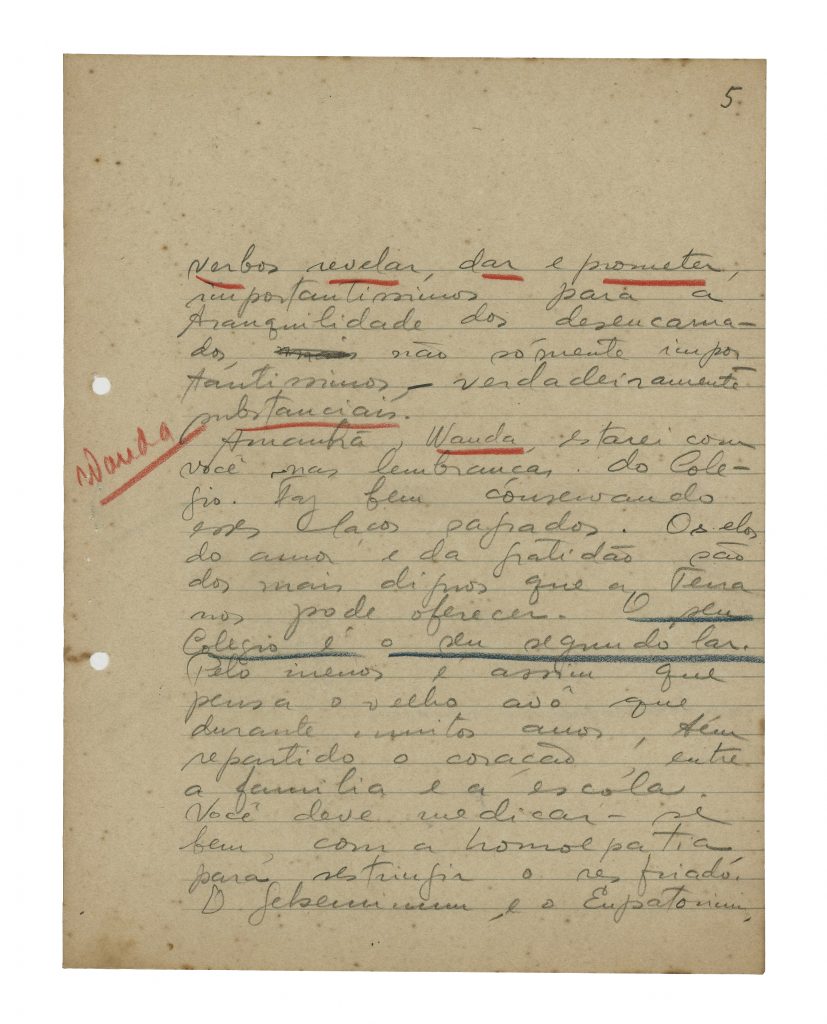 5
verbos revelar, dar e prometer,
importantissimos para a
tranquilidade dos desencarna-
dos, não sómente impor
tantissimos, – verdadeiramente
substanciais.
Wanda
Amanhã, Wanda, estarei com
você nas lembranças do Colé-
gio. Faz bem conservando
esses laços sagrados. Os elos
do amor e da gratidão são
dos mais dignos que a Terra
nos pode oferecer. O seu
Colegio é o seu segundo lar.
Pelo menos é assim que
pensa o velho avô que
durante muitos anos, têm
repartido o coração, entre
a familia e a escóla.
Você deve medicar-se
bem, com a homoepatia
para restringir o resfriado.
O Gelseminum, e o Eupatorium,